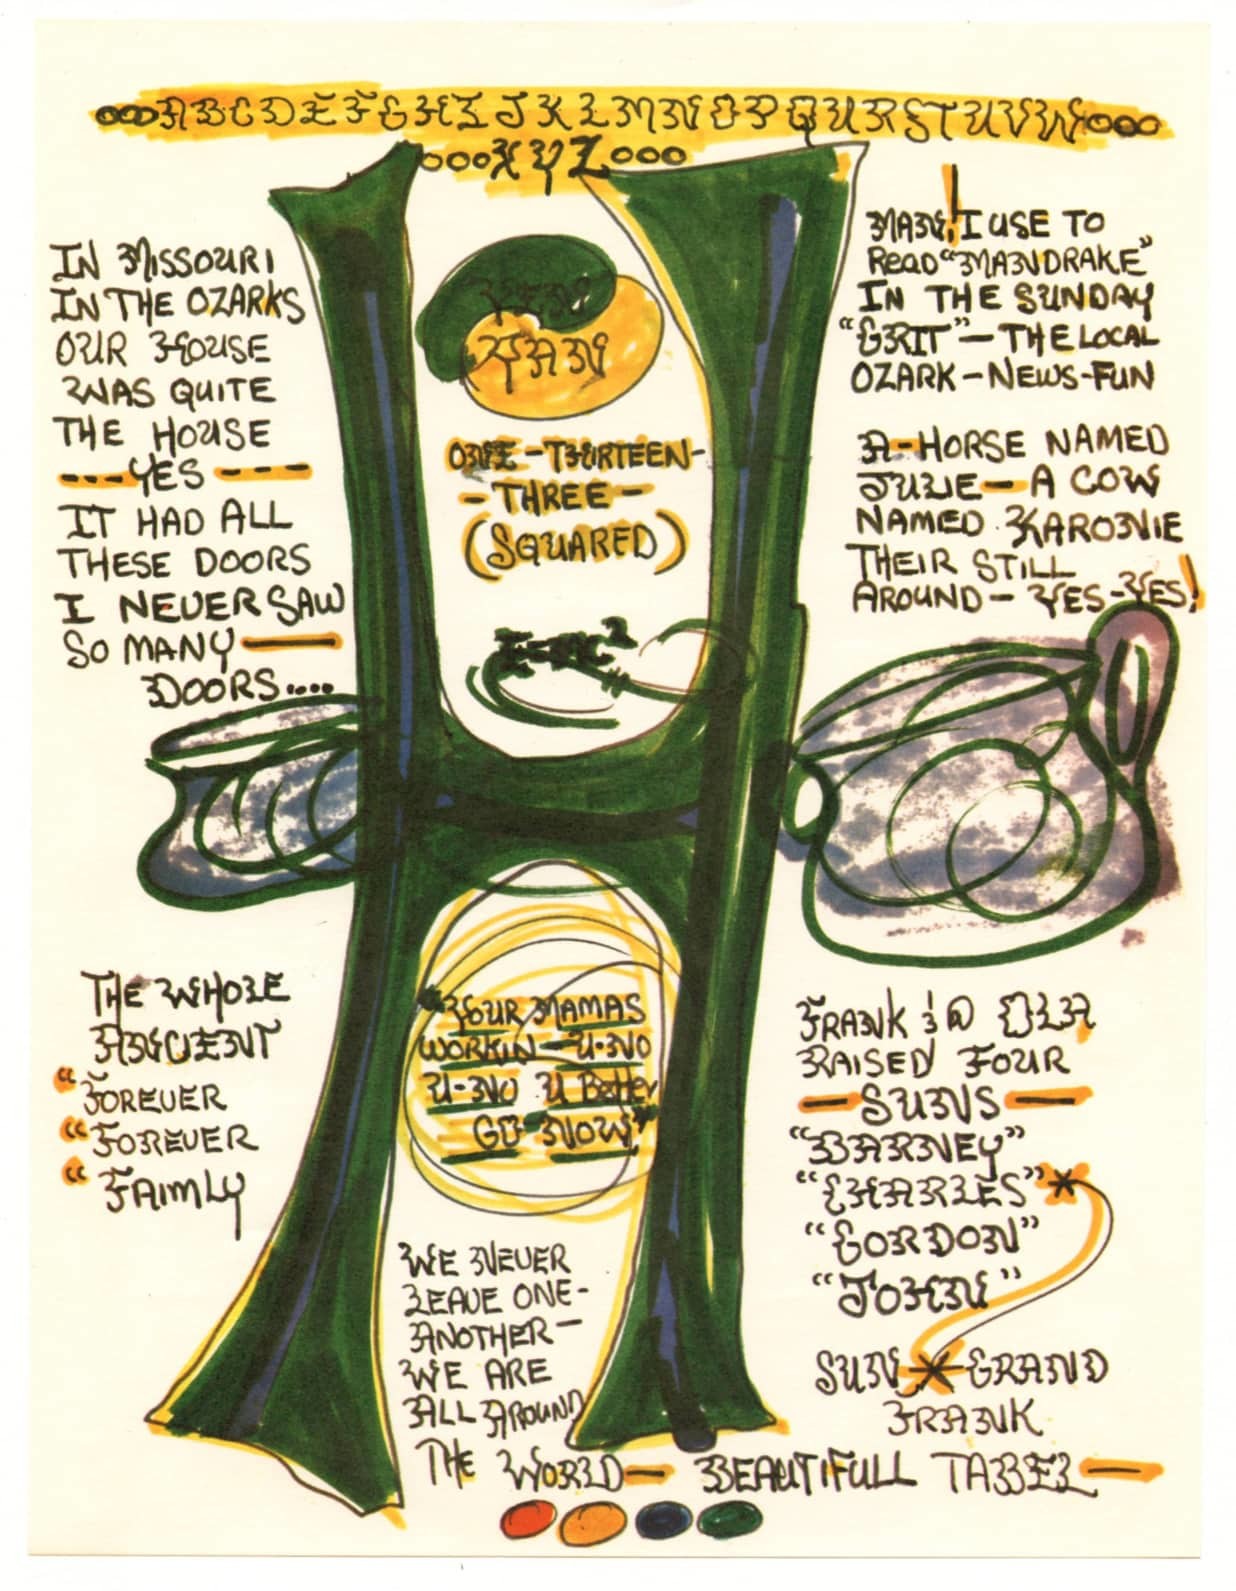 ooo ABCDEFGHIJKLMNOPQURSTUVW ooo
ooo XYZ ooo
IN MISSOURI
IN THE OZARKS
OUR HOUSE
WAS QUITE
THE HOUSE
---YES----
IT HAD ALL
THESE DOORS
I NEVER SAW
SO MANY—
DOORS....
YEN
YAN
ONE-THURTEEN-
-THREE-
(SQUARED)
MAN! I USE TO
READ "MANDRAKE"
IN THE SUNDAY
"GRIT"—THE LOCAL
OZARK-NEWS-FUN
A-HORSE NAMED
JULE—A COW
NAMED KARONIE
THEIR STILL
AROUND-YES-YES!
THE WHOLE
ANCIENT
"FOREVER
"FOREVER
"FAIMLY
"YOUR MAMAS
WORKIN-U-NO
U-NO U Better
GO NOW"
WE NEVER
LEAVE ONE-
ANOTHER-
WE ARE
ALL AROUND
THE WORLD— BEAUTIFULL TABEL—
FRANK & OLA
RAISED FOUR
—SUNS—
"BARNEY"
"CHARLES"*
"GORDON"
"JOHN"
SUN * GRAND
FRANK